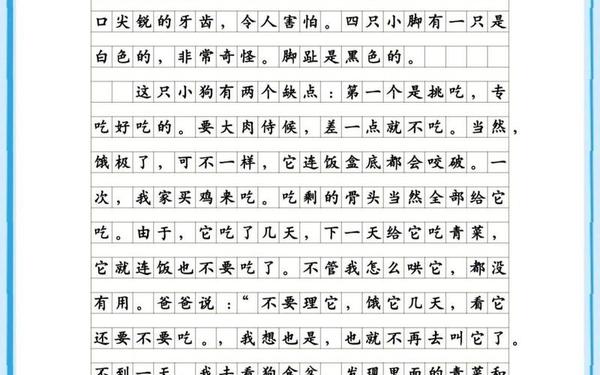 口尖锐的牙齿，令人害怕。四只小脚有一只是
白色的，非常奇怪。脚趾是黑色的。
这只小狗有两个缺点：第一个是挑吃，专
吃好吃的。要大肉侍候，差一点就不吃。当然，
饿极了，可不一样，它连饭盒底都会咬破。一
次，我家买鸡来吃。吃剩的骨头当然全部给它
吃。由于，它吃了几天，下一天给它吃青菜，
它就连饭也不要吃了。不管我怎么哄它，都没
有用。爸爸说：“不要理它，饿它几天，看它
还要不要吃。，我想也是，也就不再去叫它了。
不到一天，我去看狗食盆，发现里面的青菜和